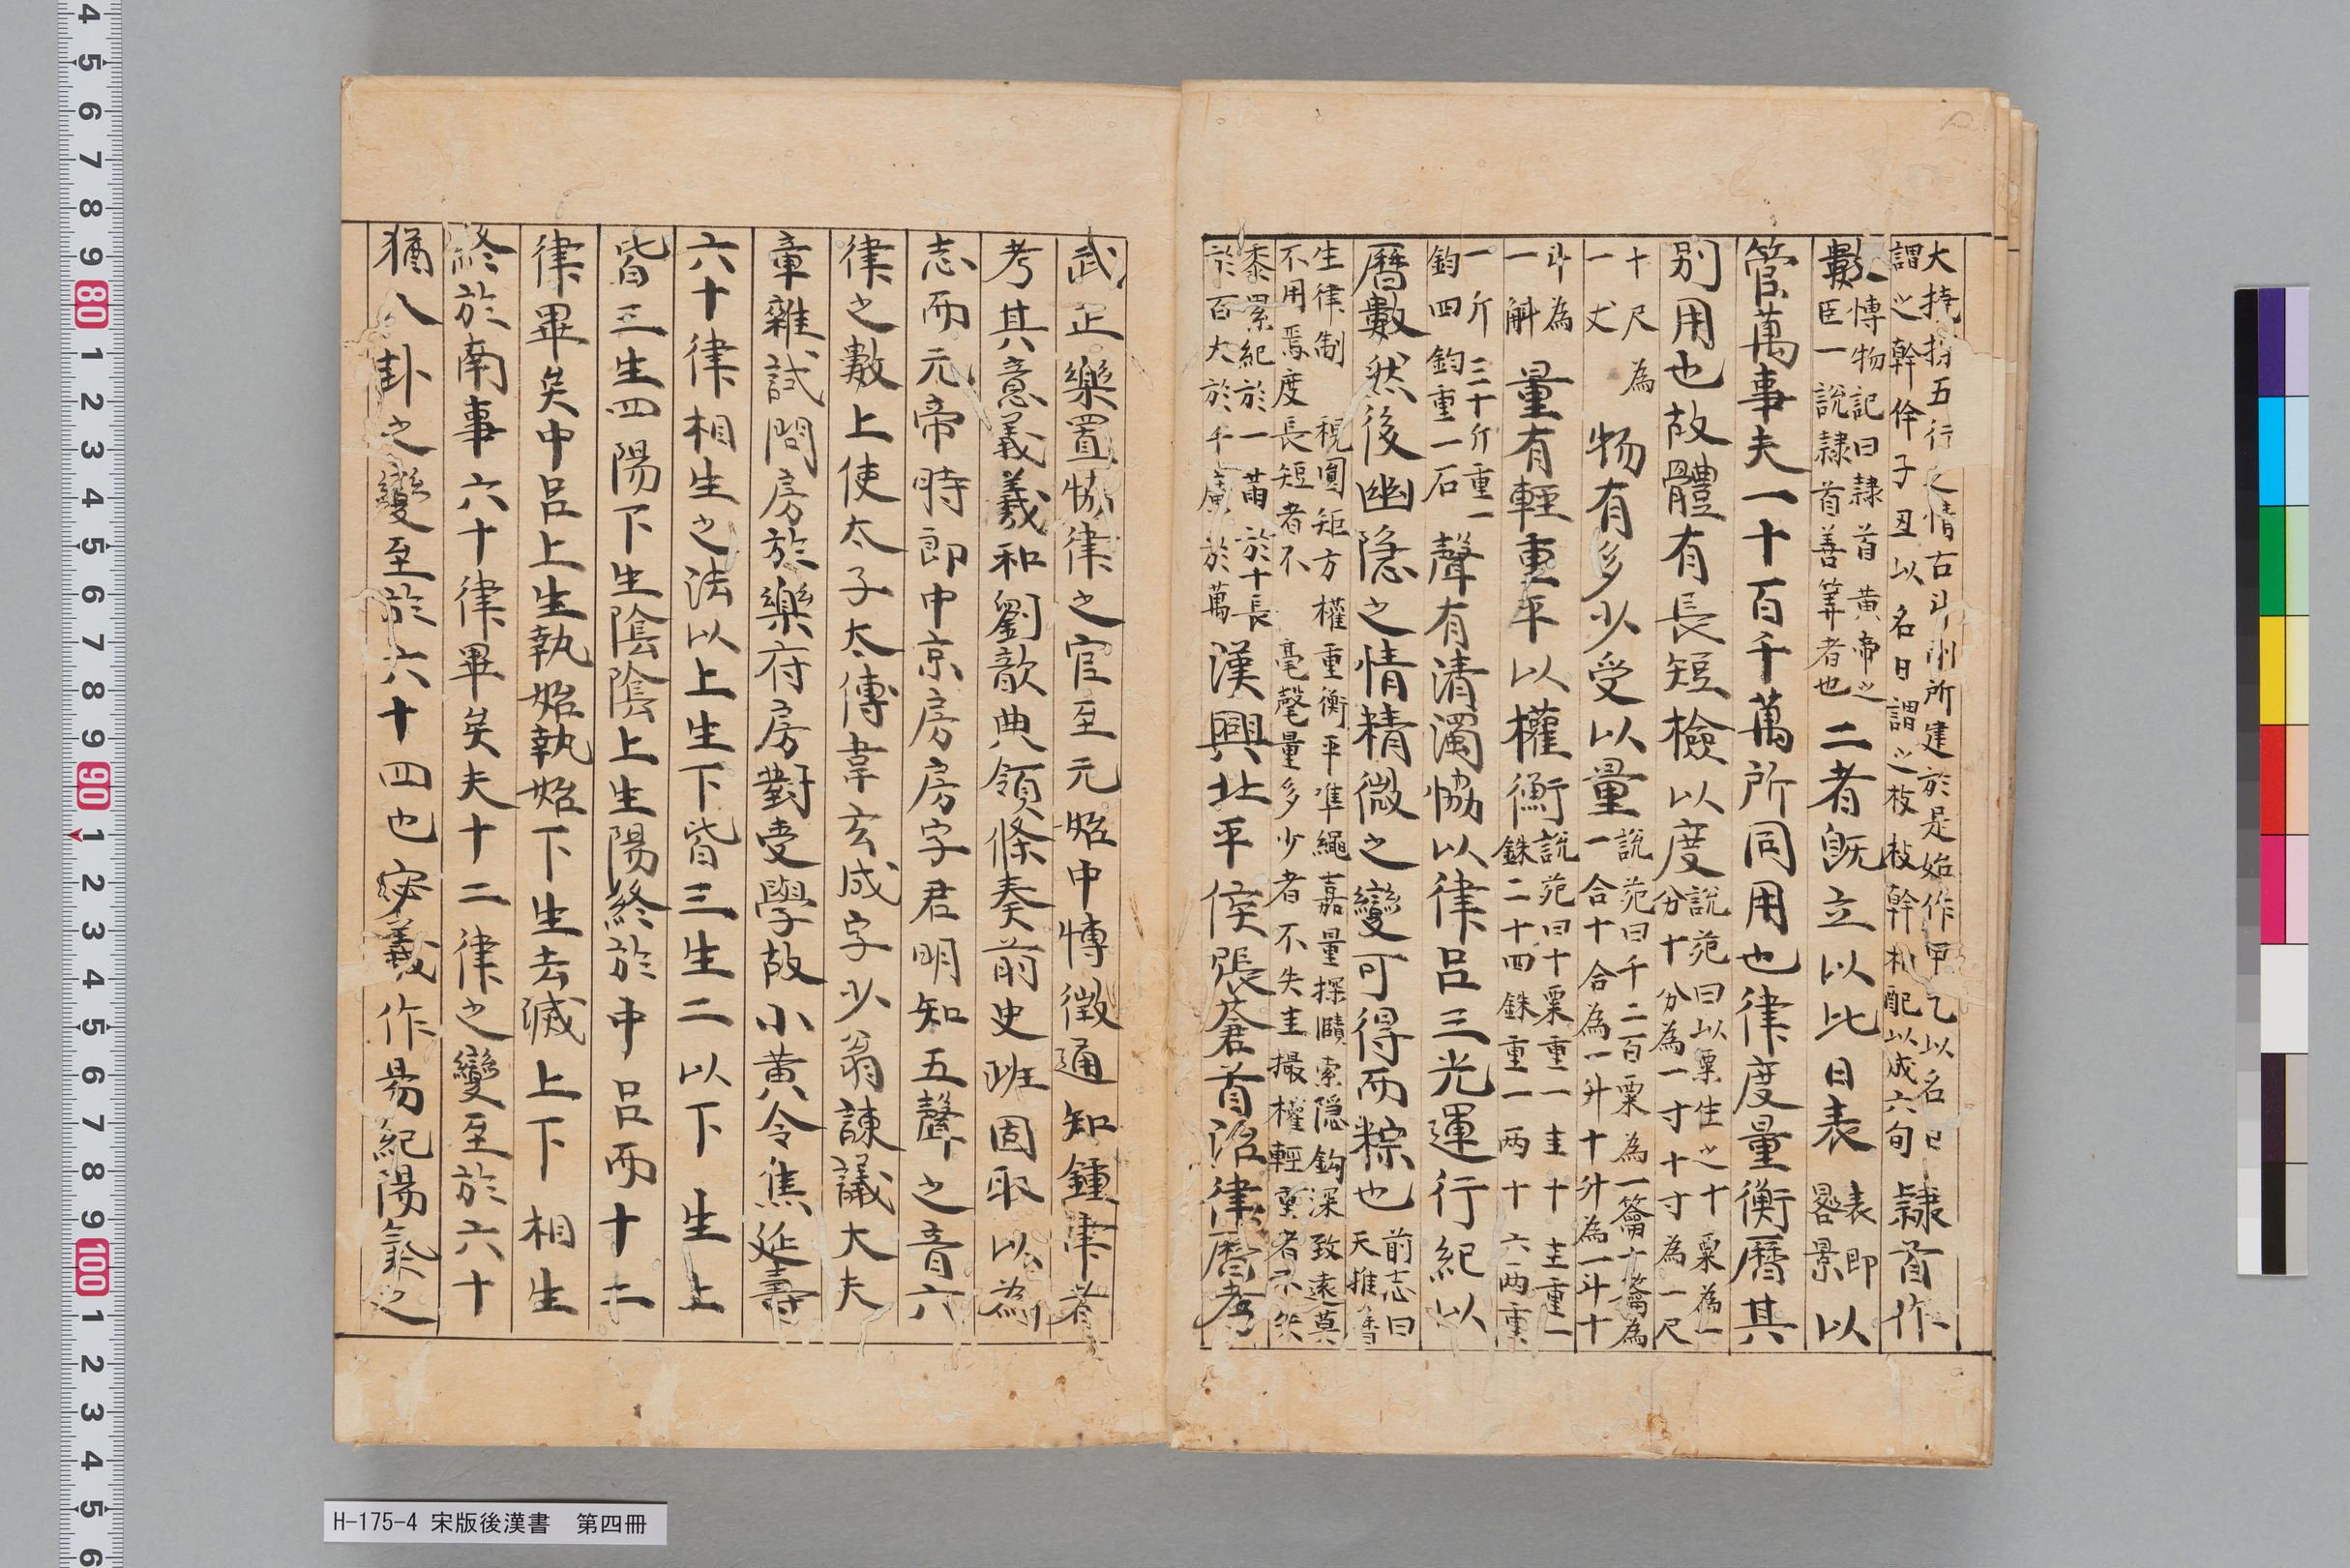 大撓探五行之情占斗剛所建於是始作甲乙以名日
謂之幹作子丑以名日謂之枝枝幹相配以成六旬
隸首作
數
博物記曰隸首黃帝之
臣一說隸首善筭者也
二者既立以比日表
表即
晷景
以
管萬事夫一十百千萬所同用也律度量衡曆其
別用也故體有長短檢以度
說苑曰以粟生之十粟為一
分十分為一寸十寸為一尺
十尺為
一丈
物有多少受以量
說苑曰千二百粟為一籥十籥為
一合十合為一升十升為一斗十
斗為
一斛
量有輕重平以權衡
說苑曰十粟重一圭十圭重一
銖二十四銖重一两十六两重
一斤三十斤重一
鈞四鈞重一石
聲有清濁協以律呂三光運行紀以
曆數然後幽隐之情精微之變可得而綜也
前志曰
天推曆
生律制 規圓矩方權重衡平準繩嘉量探賾索隐鈎深致遠莫
不用焉度長短者不 毫氂量多少者不失圭撮權輕重者不失
黍累紀於一萌於十長
於百大於千廣於萬
漢興北平侯張蒼首治律曆孝
武正樂置協律之官至元始中博徵通知鍾律者
考其意義羲和劉歆典領條奏前史班固取以為
志而元帝時郎中京房房字君明知五聲之音六
律之數上使太子太傅韋玄成字少翁諫議大夫
章雜試問房於樂府房對受學故小黃令焦延壽
六十律相生之法以上生下皆三生二以下生上
皆三生四陽下生陰陰上生陽終於中呂而十二
律畢矣中呂上生執始執始下生去滅上下相生
終於南事六十律畢矣夫十二律之變至於六十
猶八卦之變至於六十四也宓羲作易紀陽氣之
H-175-4 宋版後漢書 第四冊